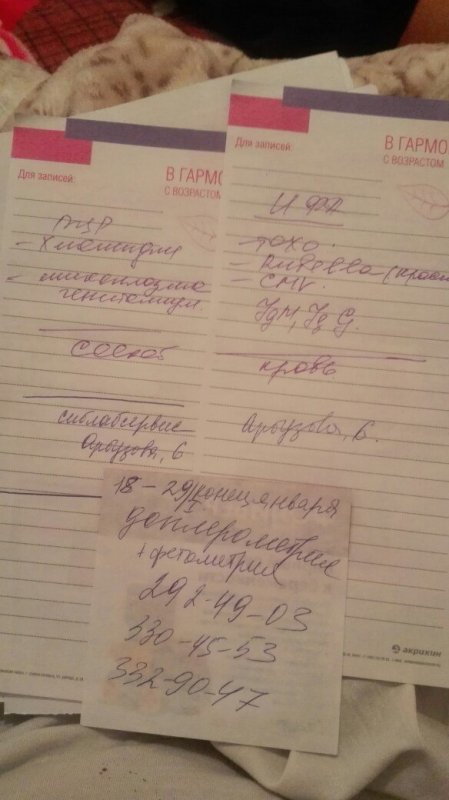 Для записей
В ГАРМО
С ВОЗРАСТОМ
ПЦР
- Хламидии
- микоплазма
гениталиум.
соскоб
Сиблабсервис
Арбузова, 6
Для записей
В ГАРМО
С ВОЗРАСТОМ
ИФА
- токсо.
- Rubella (красн
- CMV.
IgM, Ig G
кровь
Арбузова, 6.
акрихин
18 - 29/конец января
доплерометрия
+ фетометрия
292-49-03
330-45-53
332-90-47